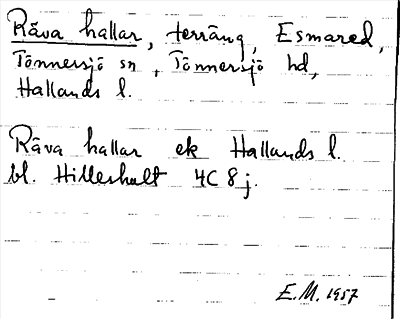 Räva hallar, terräng, Esmared,
Tönnersjö sn, Tönnersjö hd,
Hallands l.
Räva hallar ek Hallands l.
bl. Hilleshult 4C 8j.
E.M. 1957